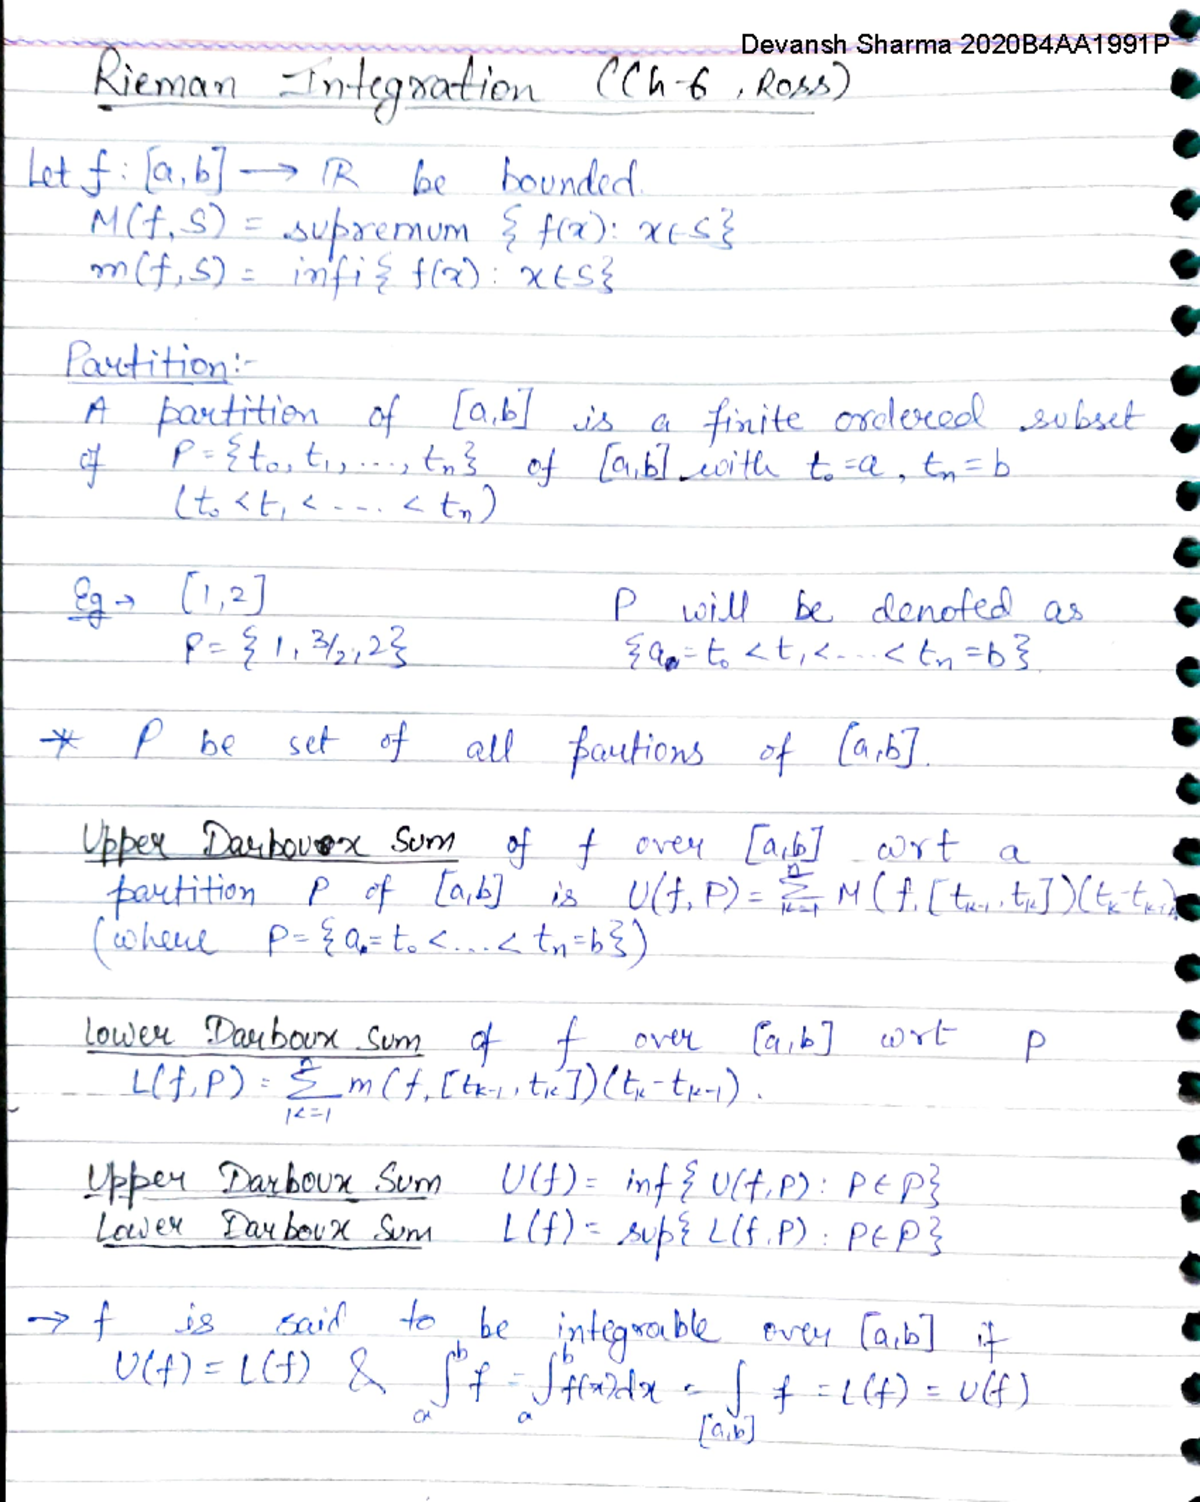 Devansh Sharma 2020B4AA1991P
Rieman Integration (Ch-6, Ross)
Let f: [a,b] → ℝ be bounded.
M(f,S) = supremum { f(x): x∈S}
m(f,S) = infi{ f(x): x∈S}
Partition:-
A partition of [a,b] is a finite ordered subset
of P={t₀, t₁, ..., tₙ} of [a,b] with t₀=a, tₙ=b
(t₀ <t₁ < .... < tₙ)
Eg → [1,2]
P= { 1, 3/2, 2}
P will be denoted as
{a = t₀ <t₁ <....< tₙ =b}
* P be set of all partions of [a,b].
Upper Darboux Sum of f over [a,b] wrt a
partition P of [a,b] is U(f,P) = ∑ₖ₌₁ⁿ M(f,[tₖ₋₁, tₖ])(tₖ-tₖ₋₁)
(where P={a=t₀<...< tₙ=b})
Lower Darboux Sum of f over [a,b] wrt P
L(f,P) = ∑ₖ₌₁ⁿ m(f,[tₖ₋₁, tₖ])(tₖ-tₖ₋₁).
Upper Darboux Sum U(f) = inf{ U(f,P): P∈P}
Lower Darboux Sum L(f) = sup{ L(f,P): P∈P}
→ f is said to be integrable over [a,b] if
U(f) = L(f) & ∫ₐᵇ f = ∫ₐᵇ f(x)dx = ∫[a,b] f = L(f) = U(f)